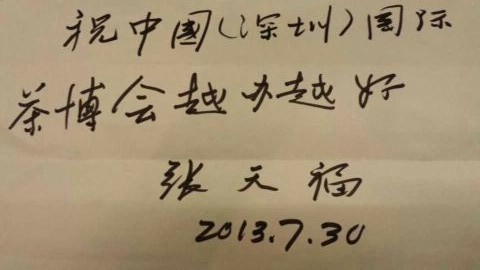 祝中国(深圳)国际
茶博会越办越好
张天福
2013.7.30